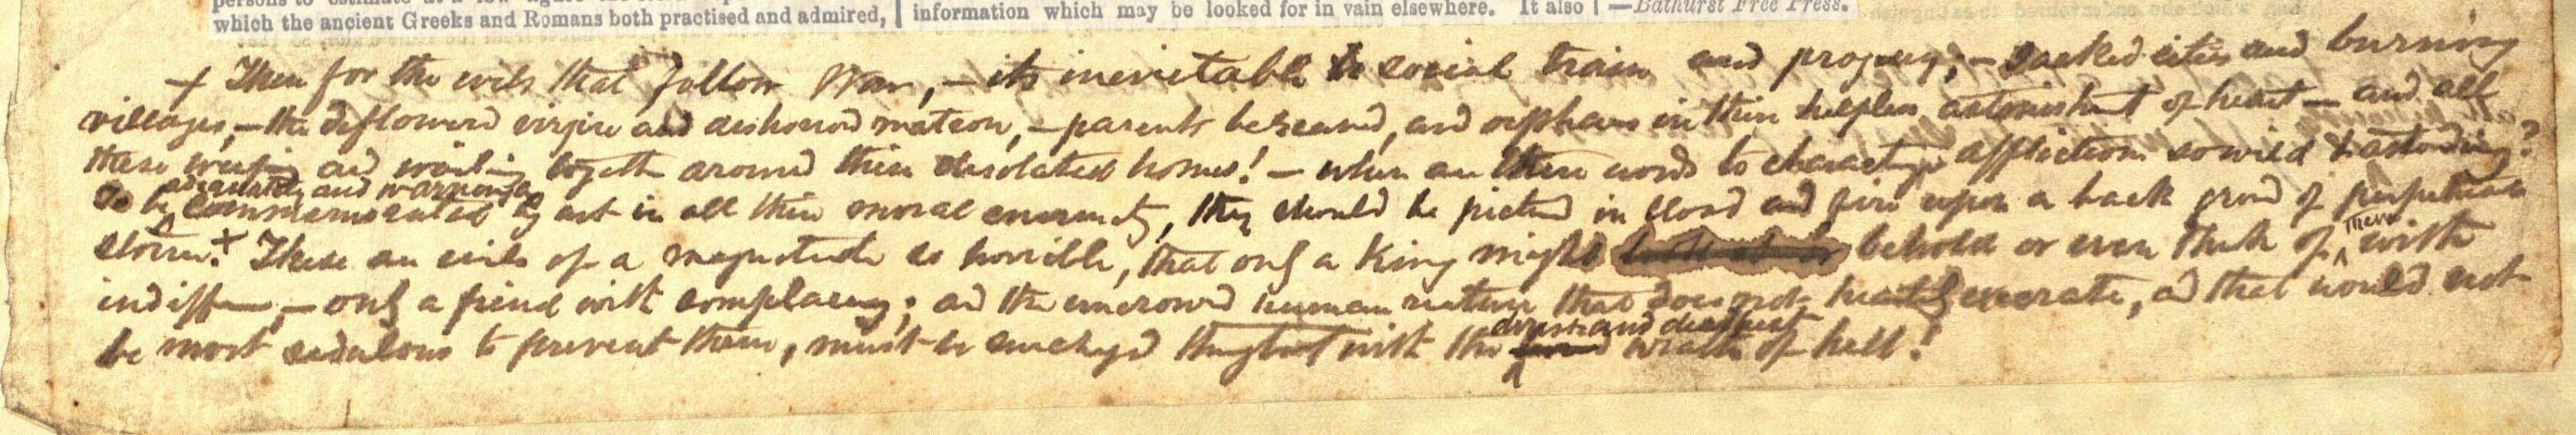 which the ancient Greeks and Romans both practised and admired,
information which may be looked for in vain elsewhere. It also
—Bathurst Free Press.
+ Then for the evils that follow War, — its inevitable social train and progeny; — sacked cities and burning
villages, — the deflowered virgin and dishonored matron, — parents bereaved, and orphans in their helpless astonishment of heart — and all
these weeping and wailing together around their desolated homes! — where are there words to characterize affliction so wild & astounding?
To be adequately and warningly commemorated by art in all their moral enormity, they should be pictured in blood and fire upon a back ground of perpetual
storm. + These are evils of a magnitude so horrible, that only a King might behold or even think of them with
indifference, — only a fiend with complacency; and the uncrowned human nature that does not heartily execrate, and that would not
be most sedulous to prevent them, must be surcharged throughout with the direst and deadliest wrath of hell!